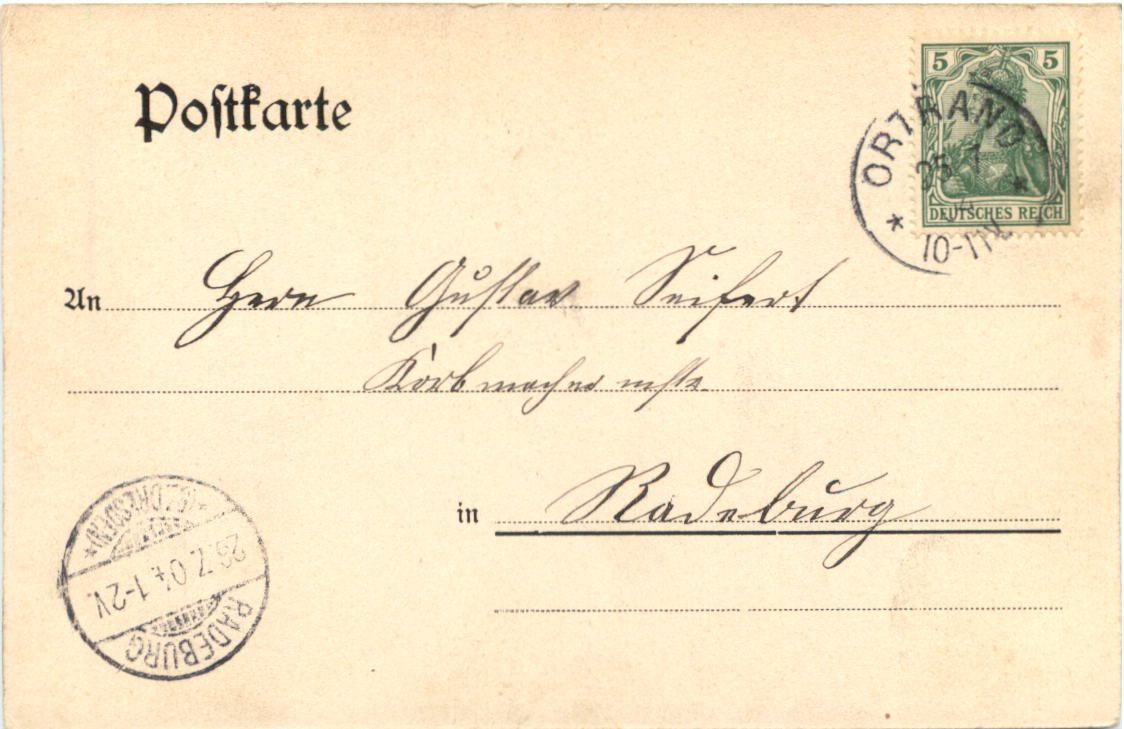 Postkarte
5 5
DEUTSCHES REICH
ORTRAND
25. 7
10-11V.
An Herrn Gustav Seifert
Korbmacher
in Radeburg
RADEBURG
26.7.04. 1-2V.
(BZ. DRESDEN)